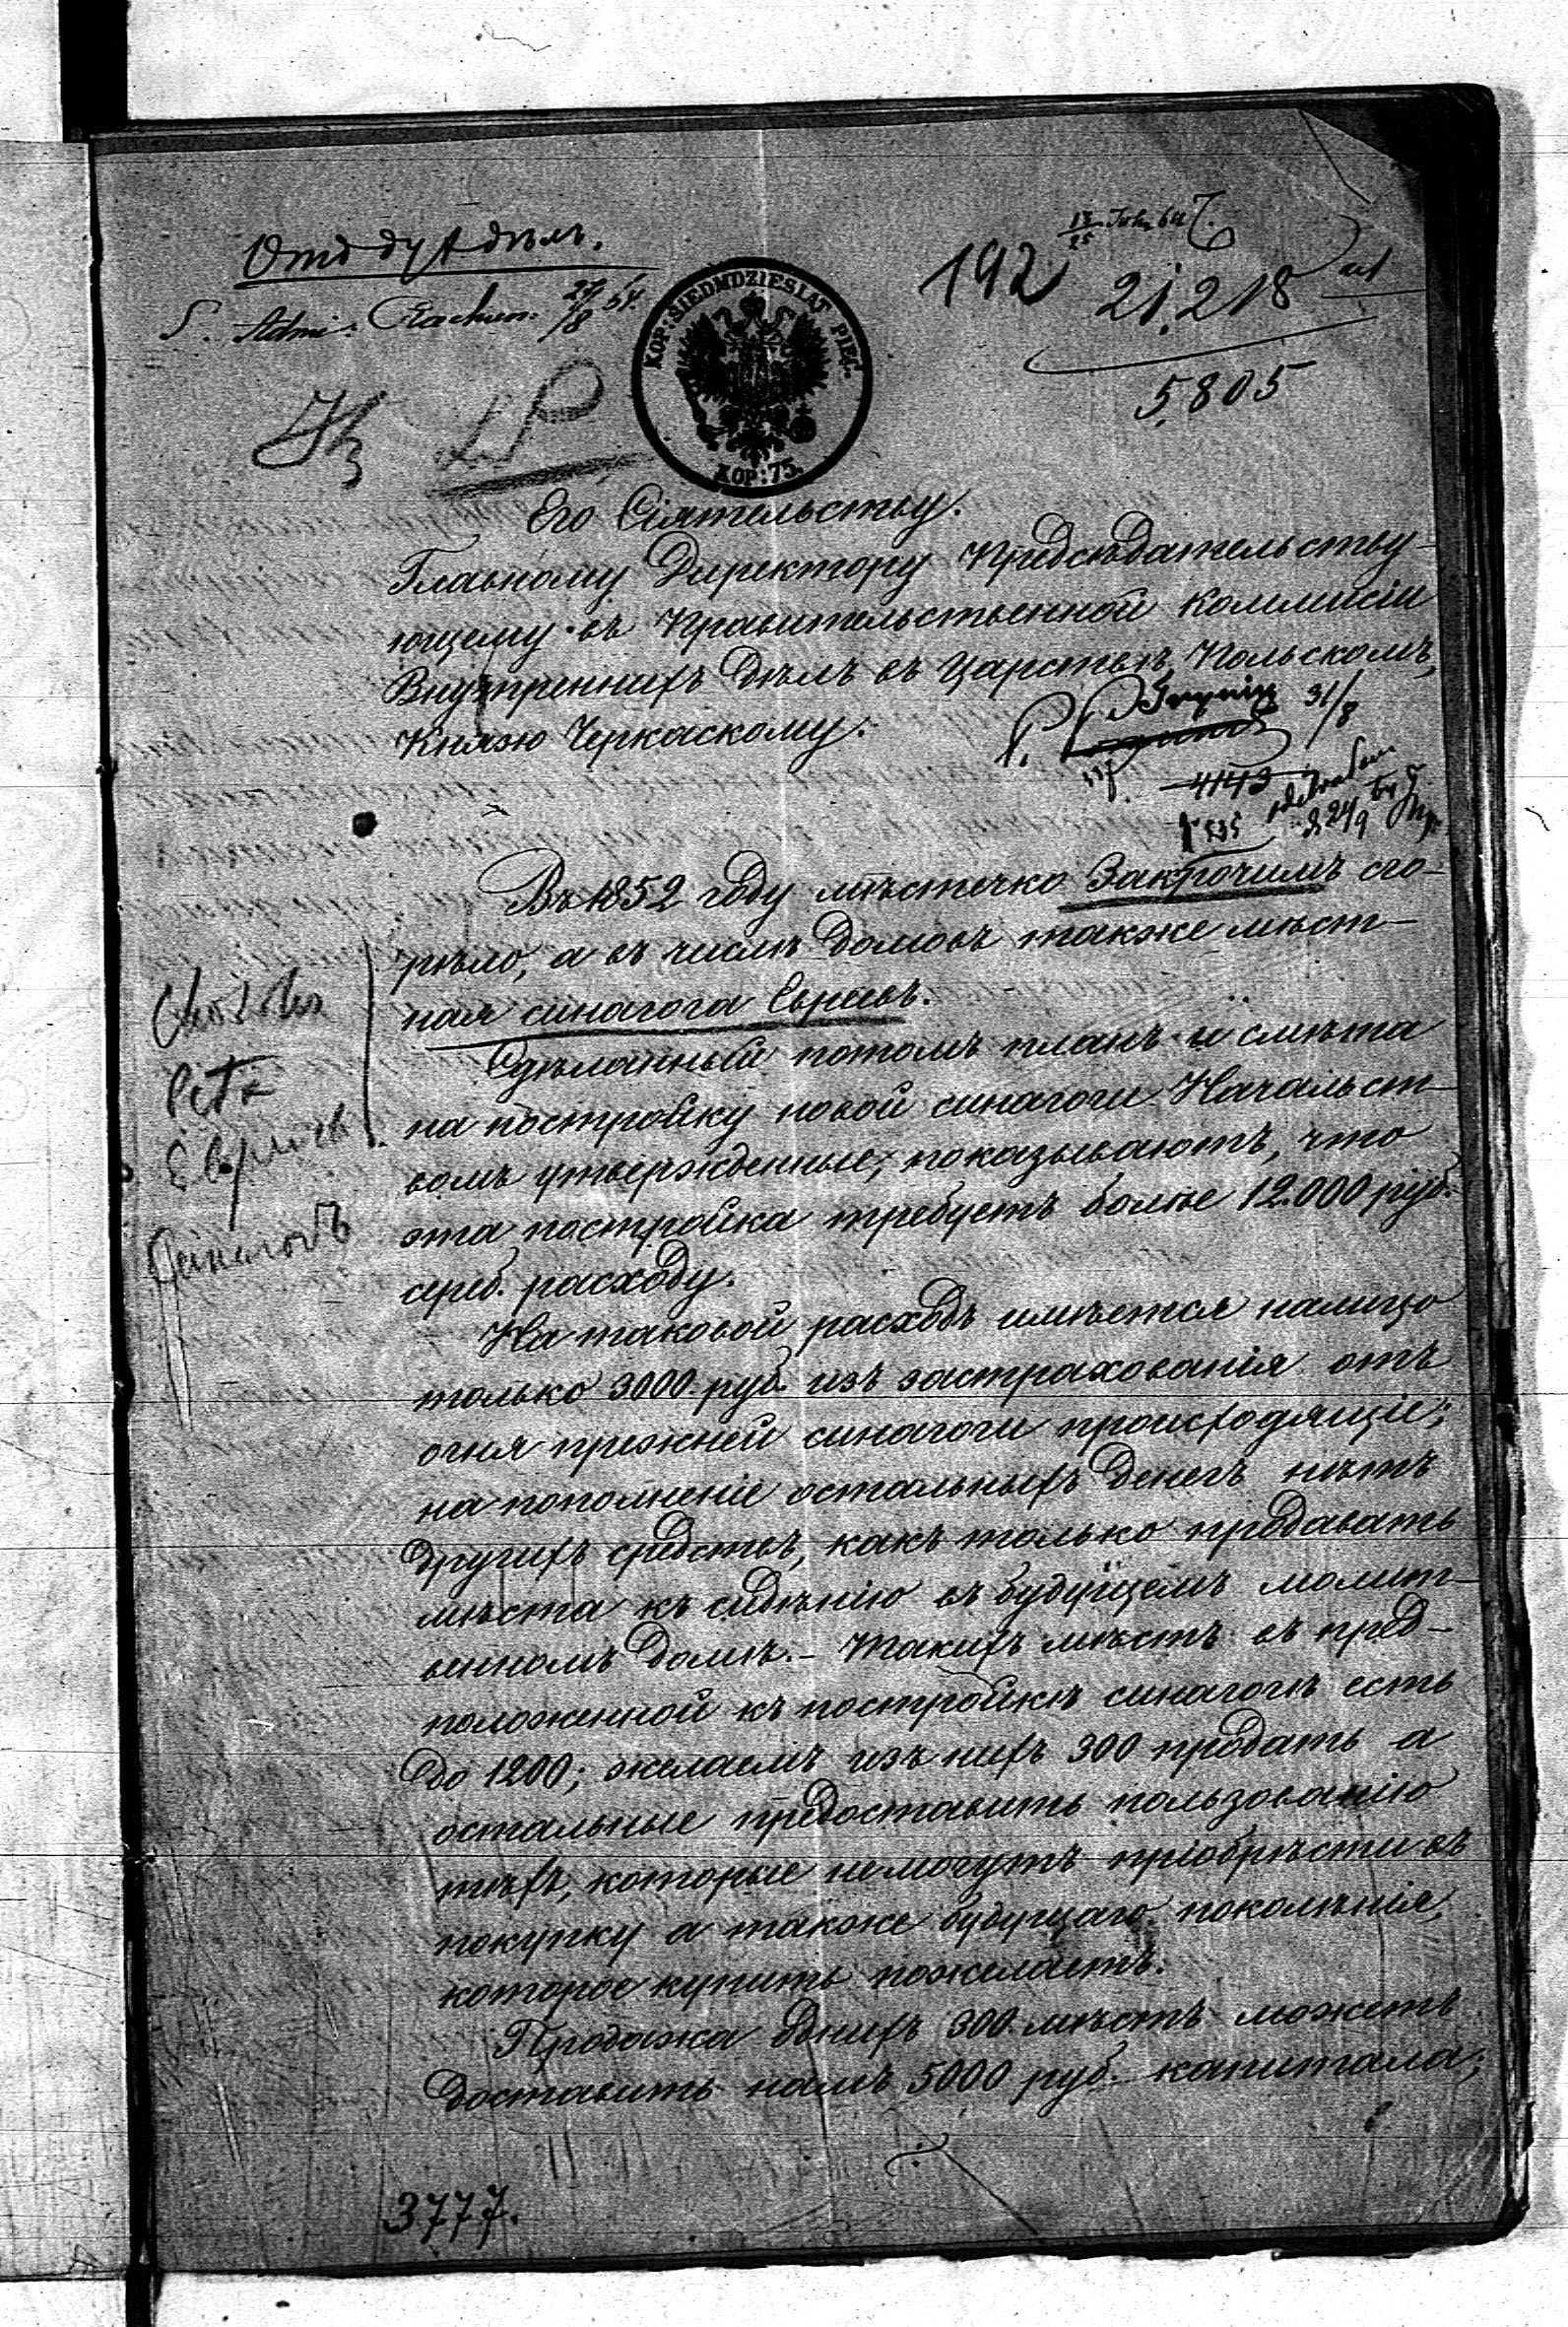 192
21.218
5805
S. Admi: Rachun. 27/8 64.
KOP: SIEDMDZIESIĄT PIĘĆ.
KOP: 75.
Его Сіятельству.
Главному Директору Предсѣдательству-
ющему въ Правительственной Коммисіи
Внутреннихъ Дѣлъ въ Царствѣ Польскомъ,
Князю Черкаскому.
31/8
4143
Въ 1852 году мѣстечко Закрочимъ сго-
рѣло, а въ числѣ домовъ также мѣст-
ная синагога Евреевъ.
Сдѣланный потомъ планъ и смѣта
на постройку новой синагоги Начальст-
вомъ утвержденные, показываютъ, что
эта постройка требуетъ болѣе 12.000 руб.
сереб. расходу.
На таковой расходъ имѣется налицо
только 3000. руб. изъ застрахованія отъ
огня прежней синагоги происходящіе;
на пополненіе остальныхъ денегъ нѣтъ
другихъ средствъ, какъ только продавать
мѣста къ сидѣнію въ будущемъ молит-
венномъ домѣ. – Такихъ мѣстъ въ пред-
положенной къ постройкѣ синагогѣ есть
до 1200; желаемъ изъ нихъ 300 продать а
остальные предоставить пользованію
тѣхъ, которые немогутъ пріобрѣсти въ
покупку а также будущаго поколѣнія,
которое купить пожелаетъ.
Продажа однихъ 300. мѣстъ можетъ
доставить намъ 5000 руб. капитала;
3777.